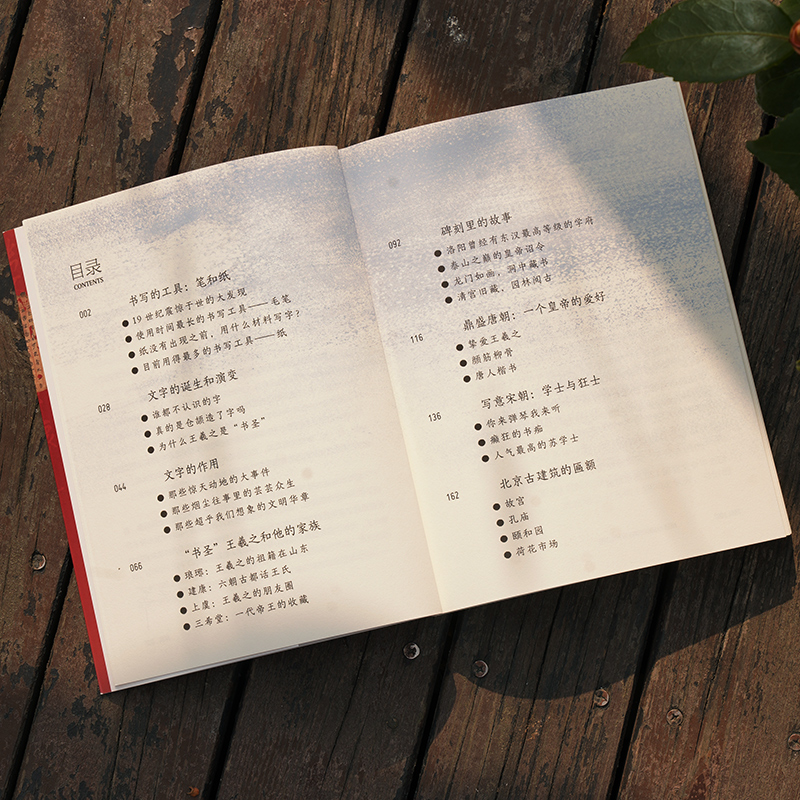 目录
CONTENTS
002
书写的工具：笔和纸
●19世纪震惊于世的大发现
●使用时间最长的书写工具——毛笔
●纸没有出现之前，用什么材料写字？
●目前用得最多的书写工具——纸
028
文字的诞生和演变
●谁都不认识的字
●真的是仓颉造了字吗
●为什么王羲之是“书圣”
044
文字的作用
●那些惊天动地的大事件
●那些烟尘往事里的芸芸众生
●那些超乎我们想象的文明华章
066
“书圣”王羲之和他的家族
●琅琊：王羲之的祖籍在山东
●建康：六朝古都话王氏
●上虞：王羲之的朋友圈
●三希堂：一代帝王的收藏
092
碑刻里的故事
●洛阳曾经有东汉最高等级的学府
●泰山之巅的皇帝诏令
●龙门如画，洞中藏书
●清宫旧藏，园林间古
116
鼎盛唐朝：一个皇帝的爱好
●挚爱王羲之
●颜筋柳骨
●唐人楷书
136
写意宋朝：学士与狂士
●你来弹琴我来听
●癫狂的书痴
●人气最高的苏学士
162
北京古建筑的匾额
●故宫
●孔庙
●颐和园
●荷花市场